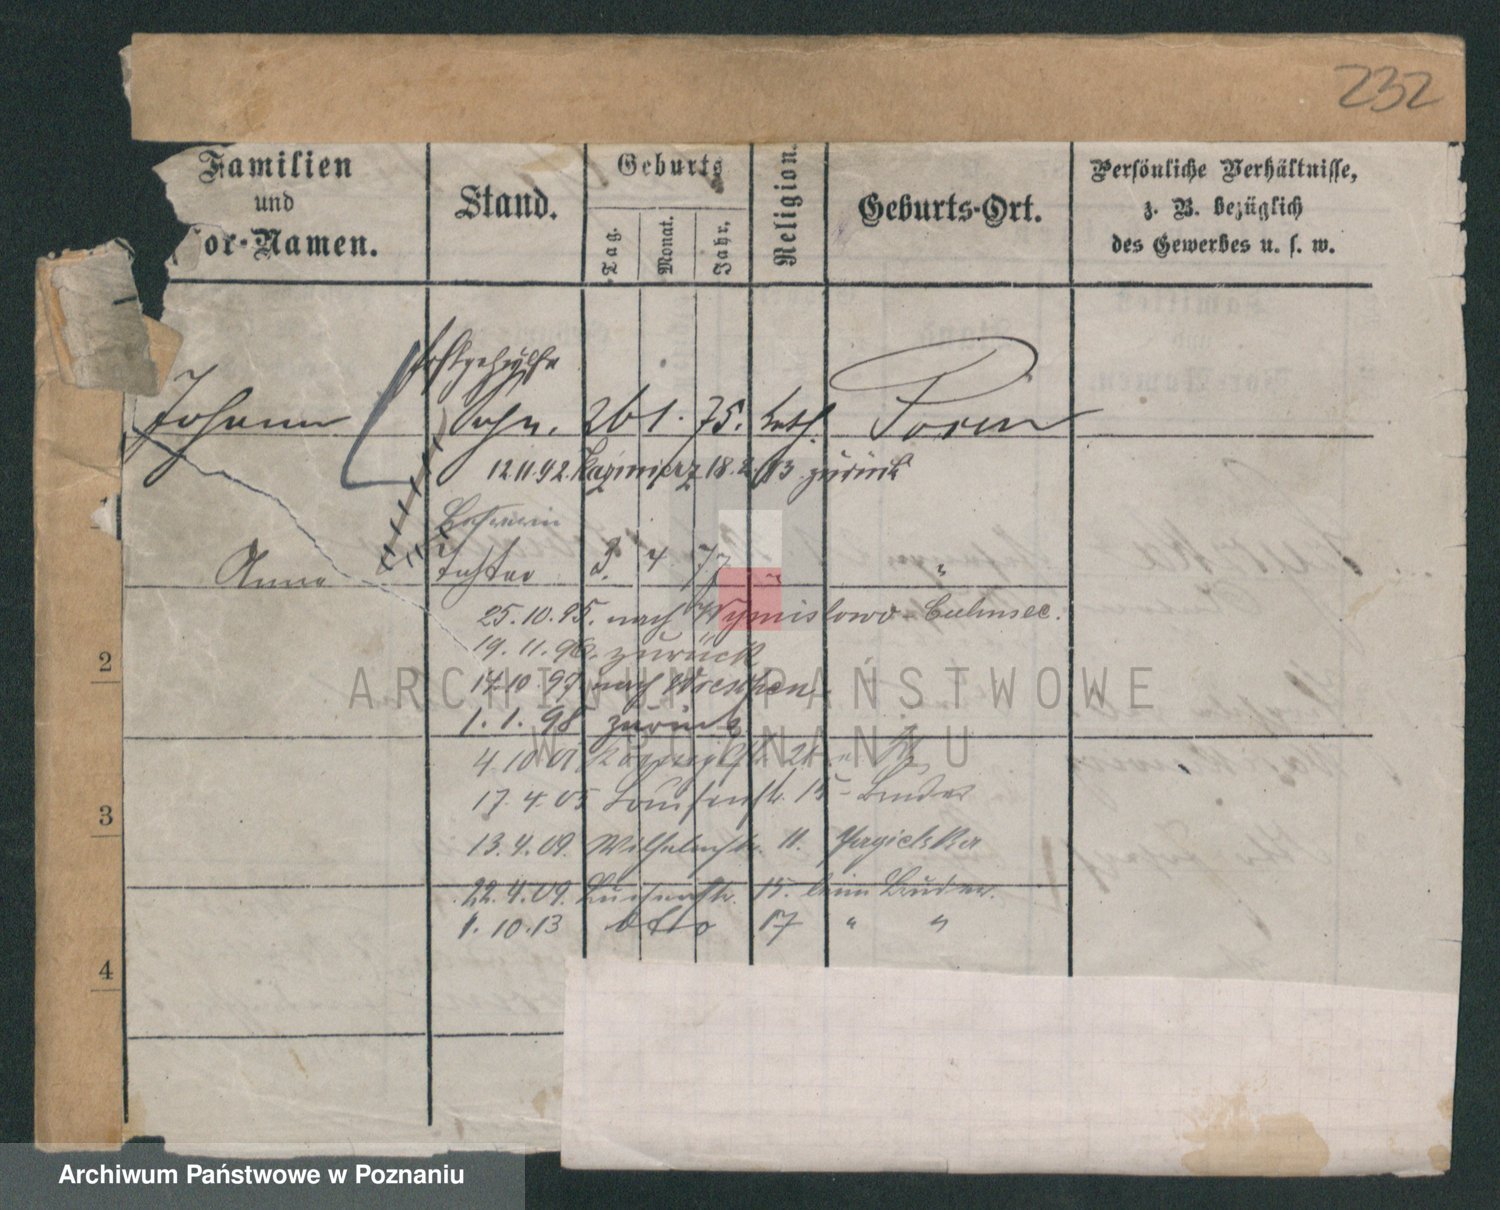 232
Familien
und
or-Namen.
Stand.
Geburts
Tag.
Monat.
Jahr.
Religion.
Geburts-Ort.
Persönliche Verhältnisse,
z. B. bezüglich
des Gewerbes u. s. w.
Postgehülfe
Johann Sohn. 26 1. 75. kath. Posen
12 11. 92. Kazimierz 18. 2. 93 zurück
1
Anna Tochter 3. 4 77 " "
25. 10. 95. nach Wymislowo - Culmsee.
19. 11. 96. zurück
2
17 10. 97 nach Wreschen
1. 1. 98 zurück
4. 10 01 28
17. 4. 05 Louisenstr. 15 - Bruder
3
13. 4. 09. Wilhelmstr. 11. Jagielska
22. 4. 09. Luisenstr. 15. beim Bruder.
1. 10. 13 dtto 17 " "
4
ARCHIWUM PAŃSTWOWE
W POZNANIU
Archiwum Państwowe w Poznaniu